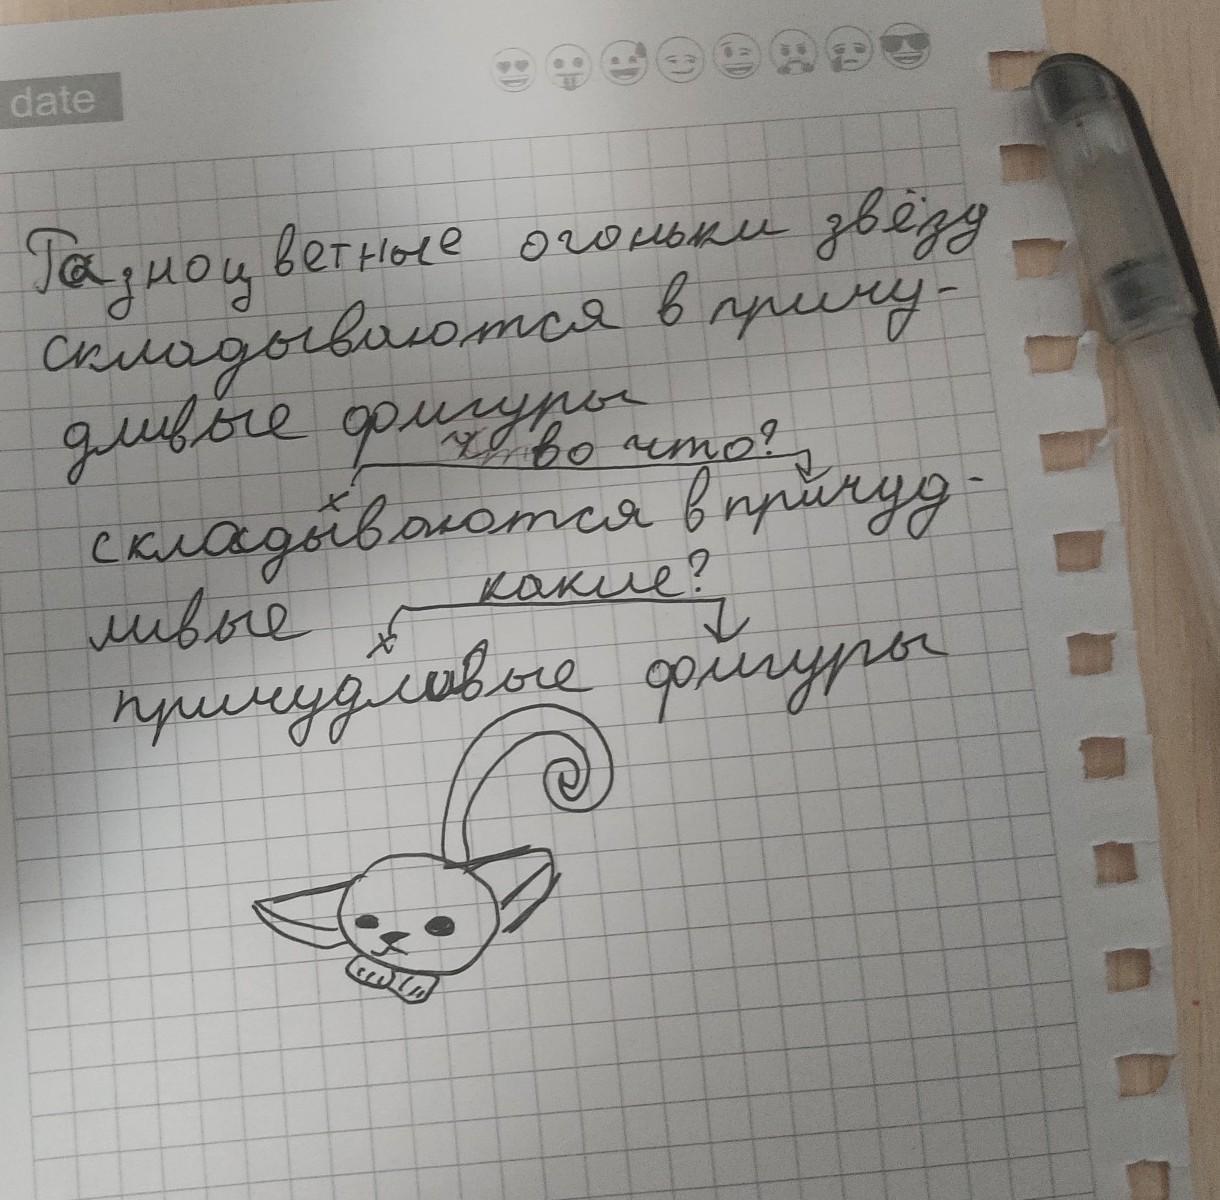 date
Разноцветные огоньки звёзд
складываются в причу-
дливые фигуры
во что?
складываются в причуд-
ливые
какие?
причудливые фигуры